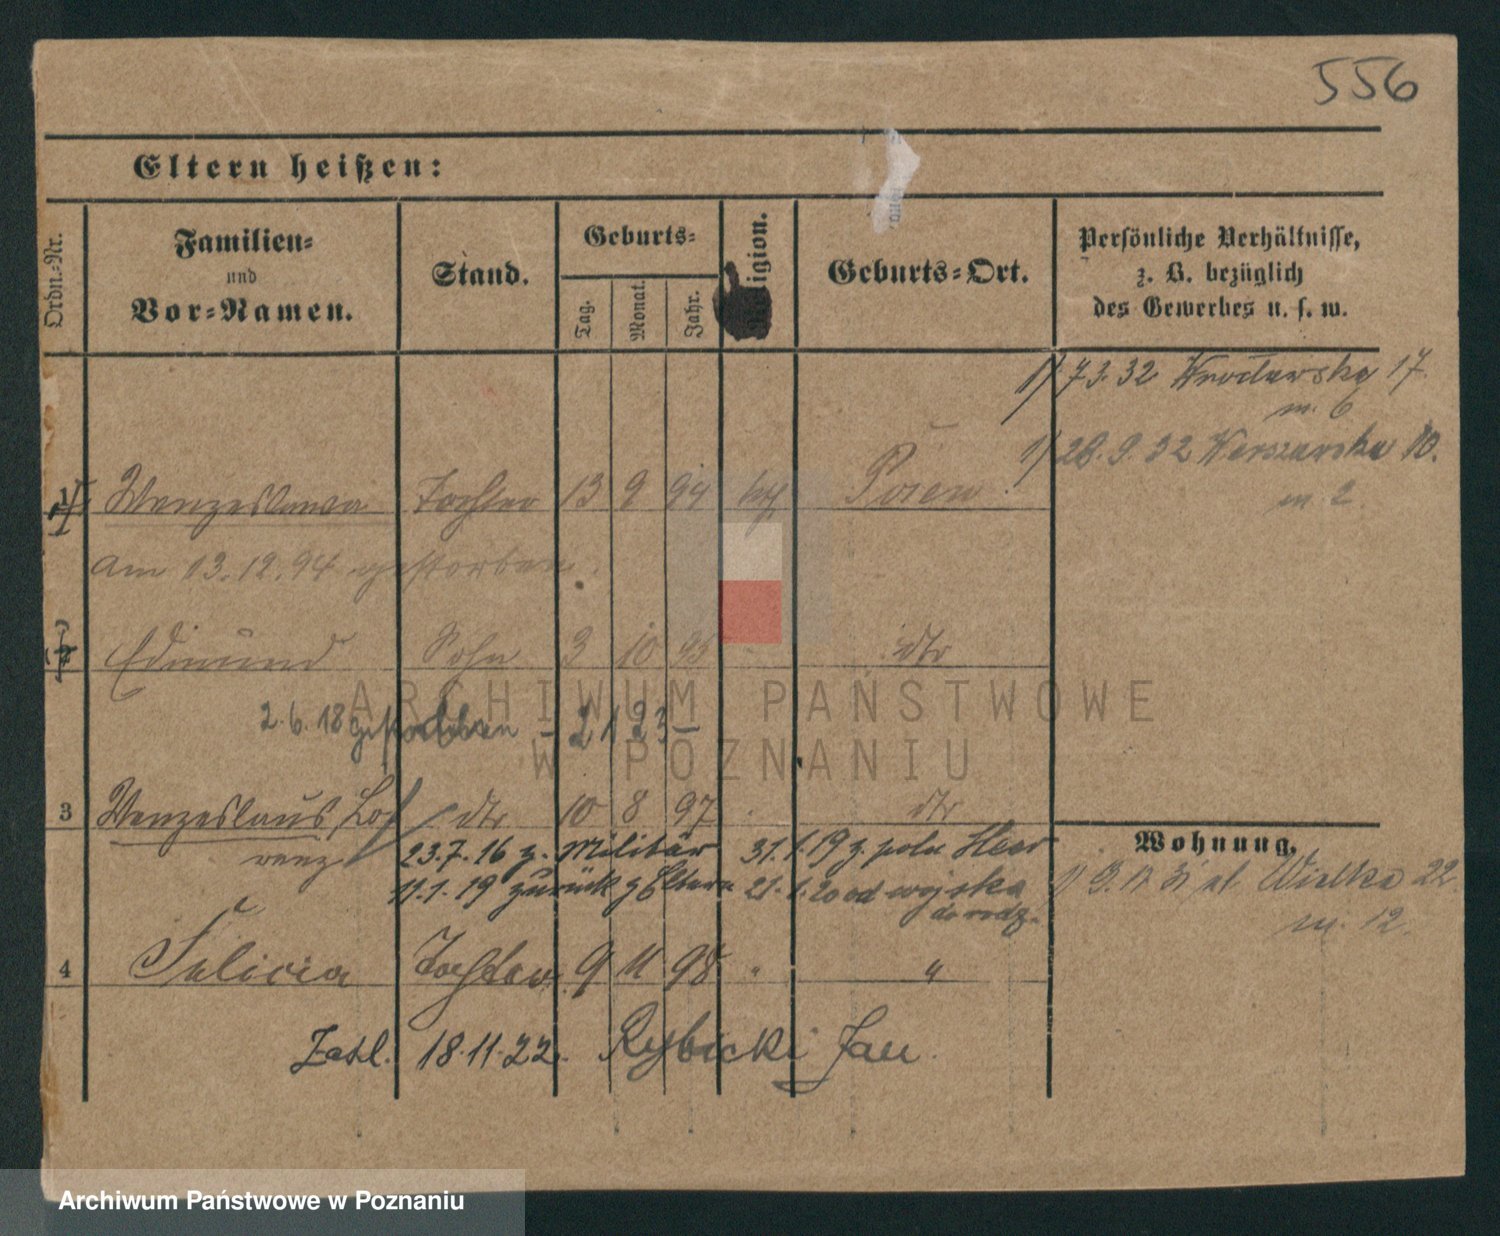 556
Eltern heißen:
Ordn.-Nr.
Familien-
und
Vor-Namen.
Stand.
Geburts-
Tag.
Monat.
Jahr.
Religion.
Geburts-Ort.
Persönliche Verhältnisse,
z. B. bezüglich
des Gewerbes u. s. w.
1/ 7.3.32 Wrocławska 17.
m. 6
1/ 28.9.32 Warszawska 10.
m 2.
1 Wenzeslawa Tochter 13 9 94 kth Posen
am 13.12.94 gestorben.
Edmund Sohn 3 10 95 dto
2.6.18 gestorben – 21 23 –
3 Wenzeslaus, Lo/ dto 10 8 97 dto
renz
23.7.16 z. Militär 31.1.19 z. poln Heer
11.1.19 zurück z Eltern 21.1.20 od wojska
do rodz.
Wohnung.
Wielka 22.
m. 12.
4 Felicia Tochter 9 11 98 " "
18.11.22. Rybicki Jan.
ARCHIWUM PAŃSTWOWE
W POZNANIU
Archiwum Państwowe w Poznaniu